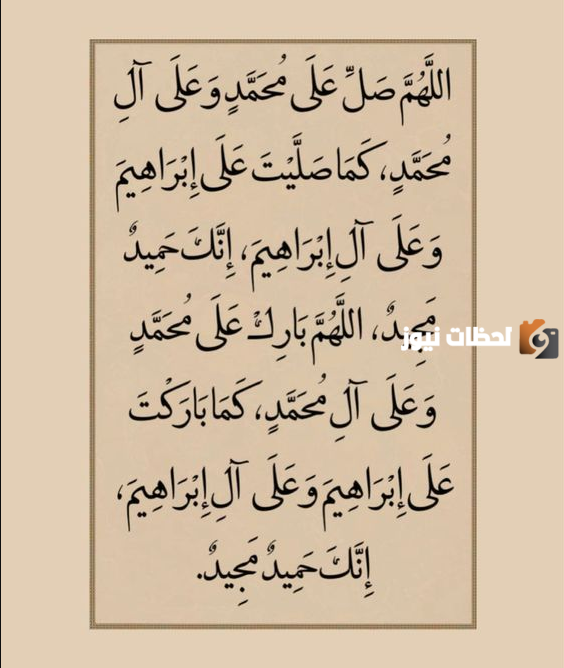 اللَّهُمَّ صَلِّ عَلَى مُحَمَّدٍ وَعَلَى آلِ
مُحَمَّدٍ، كَمَا صَلَّيْتَ عَلَى إِبْرَاهِيمَ
وَعَلَى آلِ إِبْرَاهِيمَ، إِنَّكَ حَمِيدٌ
مَجِيدٌ، اللَّهُمَّ بَارِكْ عَلَى مُحَمَّدٍ
لحظات نيوز
وَعَلَى آلِ مُحَمَّدٍ، كَمَا بَارَكْتَ
عَلَى إِبْرَاهِيمَ وَعَلَى آلِ إِبْرَاهِيمَ،
إِنَّكَ حَمِيدٌ مَجِيدٌ.